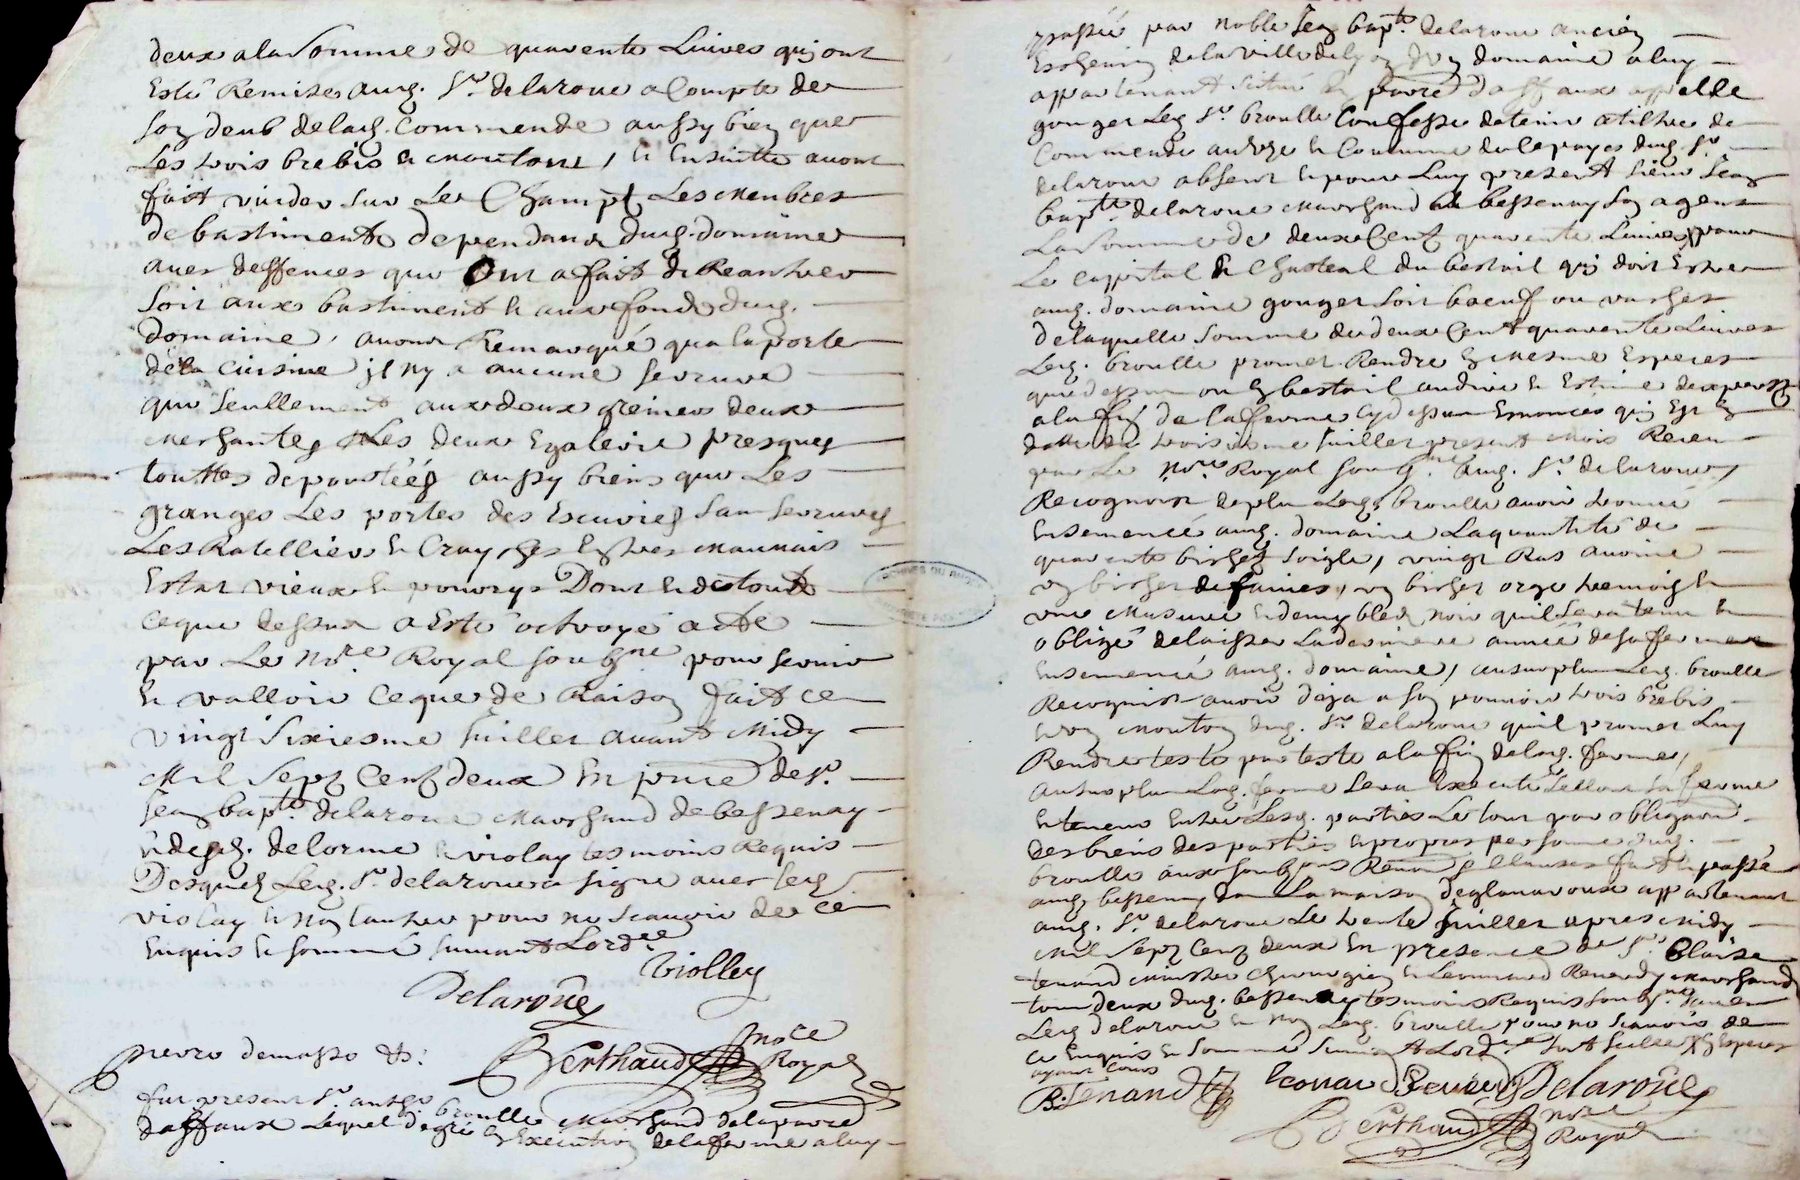 deux a la Somme de quarente Livres quj ont
Esté Remises aud. Sr. delaroue a Compte de
son deub de lad. Commende aussy bien que
Les trois brebis & moutons, & Ensuitte avons
fait vuider sur Le Champt Les Meubles
de bastiments dependans dud. domaine
avec deffences que Ont a fait de Reantrer
soit aux bastiments & aux fonds dud.
domaine, avons Remarqué qua la porte
de la Cuisine jl ny a aucune serrure
que seullement aux deux greniers deux
meschantes Les deux presques
touttes aussy biens que Les
granges Les portes des Escuries sans serrures
Les Ratelliers & Crayches Estres Mauvais
Estat vieux & pourrys Dont & de tout
ce que dessus a Esté octroyé acte
par Le nore Royal soubsne pour servir
& valloir ce que de Raison fait ce
vingt sixiesme Juillet avant Midy
Mil sept Cent deux En pnce de sr.
Jean bapte. delaroue Marchand de bessenay
& desd. delorme & violay tesmoins Requis
Desquels Led. Sr. delaroue a signé avec led.
violay & non lautre pour ne scavoir de ce
Enquis & sommé suivant Lordce
Violley
Delaroüe
Berthaud nore Royal
pierre
fut present Sr. broulle Marchand de la parroe
daffaux Lequel de gré En Execution de la ferme a luy
passée par noble Jean bapte. delaroue ancien
Eschevin de la ville de Lyon dun domaine a luy
appartenant situé En parroe daffaux appelle
gouger Led. Sr. broulle Confesse detenir a tiltre de
Commende au us & Coutume de ce payes dud. Sr.
delaroue absent & pour Luy present sieur Jean
bapte. delaroue Marchand de bessenay son agent
La Somme de deux Cent quarente Livres pour
Le cappital & Chasteal du bestail quj doit Estre
aud. domaine gouger soit boeuf ou vaches
de laquelle somme de deux Cent quarente Livres
Led. broulle promet Rendre En mesme Especes
que dessus ou En bestail au dire & Estime
a la fin de la ferme cy dessus Enoncée quj Est En
datte du troisiesme Juillet present mois Receu
par Le nore Royal soubsne aud. Sr. delaroue,
Recognoist de plus Led. broulle avoir trouvé
Ensemencé aud. domaine La quantité de
quarente bichets soigle, vingt Ras avoine
un bichet de faines, un bichet orge tremois &
une Mesure & demy bled noir quil sera tenu &
obligé delaisser La derniere année de sa ferme
Ensemencé aud. domaine, au surplus Led. broulle
Recognoist avoir deja a son pouvoir trois brebis
& un Mouton dud. Sr. delaroue quil promet Luy
Rendre teste par teste a la fin de lad. ferme,
au surplus Lad. ferme sera Executé selon sa forme
& teneur Entre Lesd. parties Le tout par obligaon.
des biens des parties & propres personne dud.
broulle aux soubmons Renons & Clauses fait & passé
aud. bessenay dans La maison appartenant
aud. Sr. delaroue Le trente Juillet apres Midy
Mil sept Cent deux En presence de Sr. Blaise
tenand Maistre Chirurgien & Leonnard Marchand
tous deux dud. bessenay tesmoins Requis soubsnes avec
Led. delaroue & non Led. broulle pour ne scavoir de
ce Enquis & sommé suivant Lordce Especes
ayant Cours
B. Tenand Leonar Delaroüe
Berthaud nore Royal